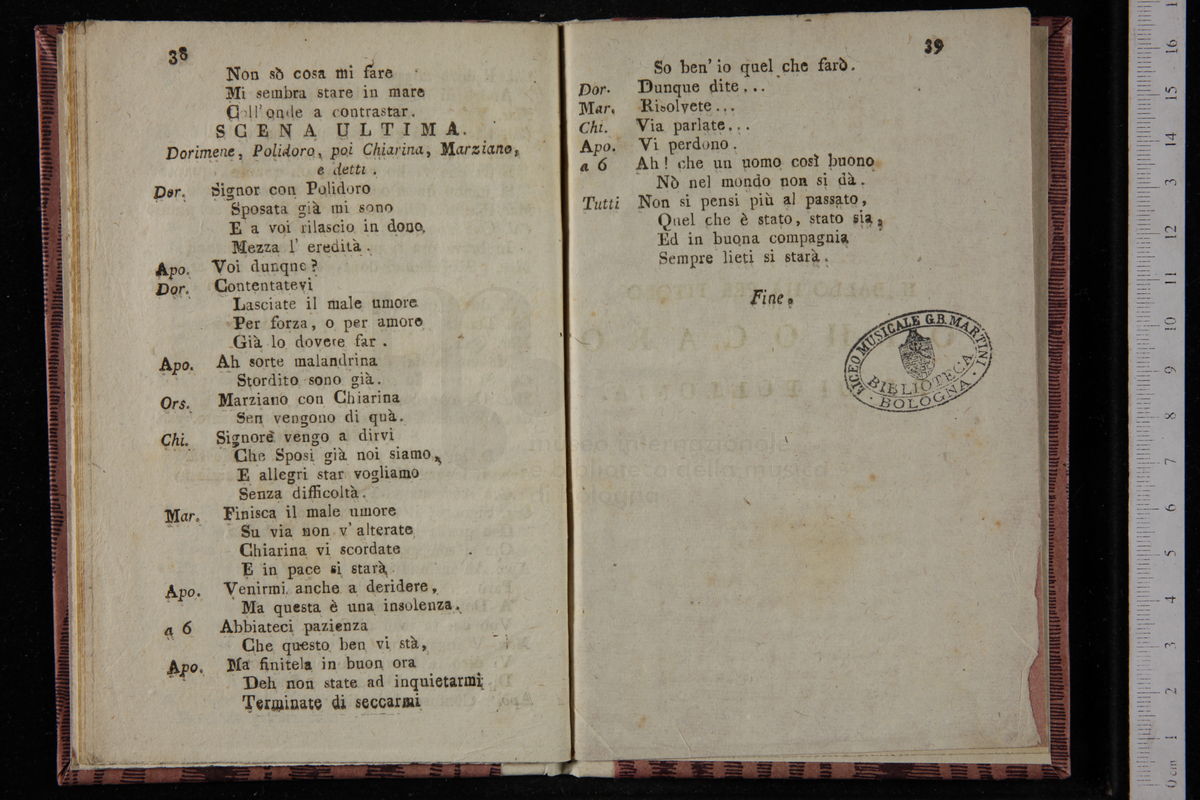 38
Non sò cosa mi fare
Mi sembra stare in mare
Coll' onde a contrastar.
SCENA ULTIMA.
Dorimene, Polidoro, poi Chiarina, Marziano,
e detti.
Dor. Signor con Polidoro
Sposata già mi sono
E a voi rilascio in dono,
Mezza l' eredità.
Apo. Voi dunque?
Dor. Contentatevi
Lasciate il male umore
Per forza, o per amore
Già lo dovete far.
Apo. Ah sorte malandrina
Stordito sono già.
Ors. Marziano con Chiarina
Sen vengono di quà.
Chi. Signore vengo a dirvi
Che Sposi già noi siamo,
E allegri star vogliamo
Senza difficoltà.
Mar. Finisca il male umore
Su via non v' alterate
Chiarina vi scordate
E in pace si starà
Apo. Venirmi anche a deridere,
Ma questa è una insolenza.
a 6 Abbiateci pazienza
Che questo ben vi stà,
Apo. Ma finitela in buon ora
Deh non state ad inquietarmi;
Terminate di seccarmi
39
So ben' io quel che farò.
Dor. Dunque dite...
Mar. Risolvete...
Chi. Via parlate...
Apo. Vi perdono.
a 6 Ah! che un uomo così buono
Nò nel mondo non si dà.
Tutti Non si pensi più al passato,
Quel che è stato, stato sia,
Ed in buona compagnia
Sempre lieti si starà.
Fine.
LICEO MUSICALE G.B. MARTINI
BIBLIOTECA
· BOLOGNA ·
museo internazionale
e biblioteca della musica
di Bologna
0 cm 1 2 3 4 5 6 7 8 9 10 11 12 13 14 15 16